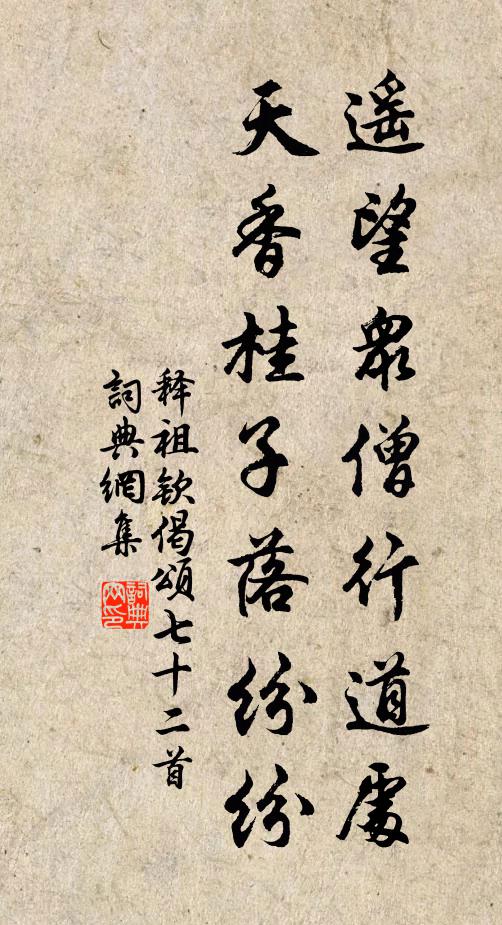 遥望眾僧行道處
天香桂子落紛紛
释祖欽偈頌七十二首
詞典網集
詞典网印